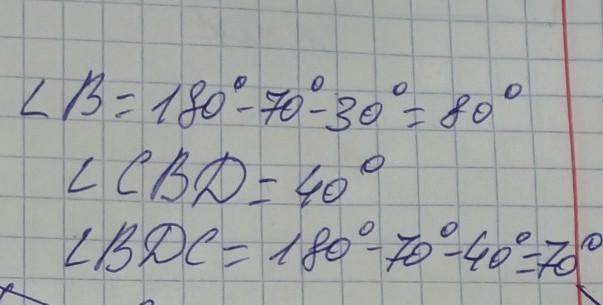 ∠B=180°-70°-30°=80°
∠CBD=40°
∠BDC=180°-70°-40°=70°